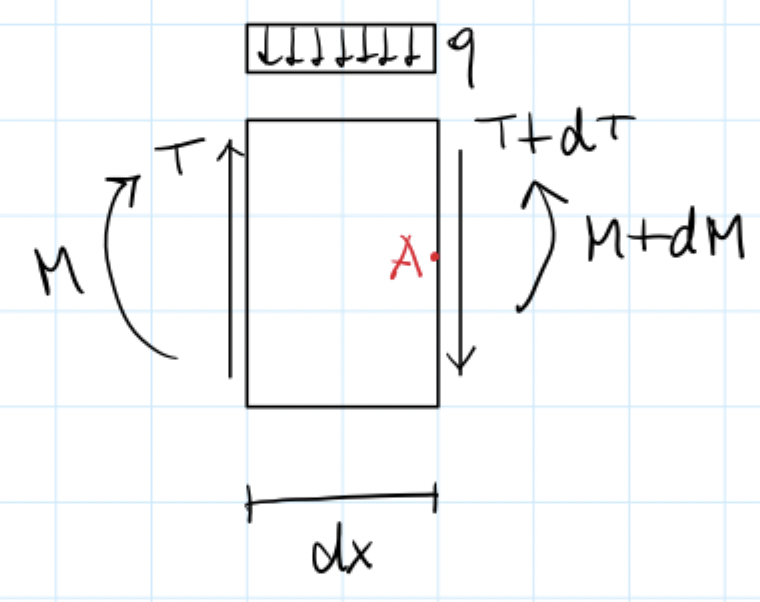 q
T
T+dT
M
A
M+dM
dx